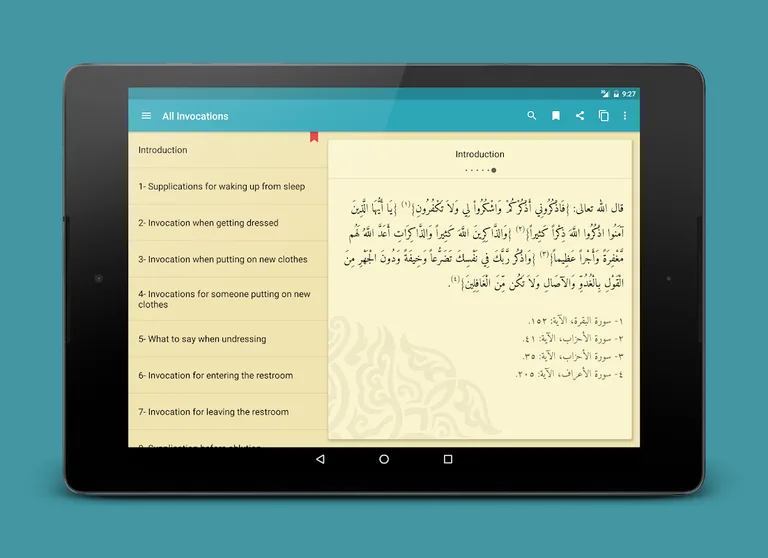 9:27
All Invocations
Introduction
1- Supplications for waking up from sleep
2- Invocation when getting dressed
3- Invocation when putting on new clothes
4- Invocations for someone putting on new
clothes
5- What to say when undressing
6- Invocation for entering the restroom
7- Invocation for leaving the restroom
8- Supplication before ablution
Introduction
قال الله تعالى: {فَاذْكُرُونِي أَذْكُرْكُمْ وَاشْكُرُواْ لِي وَلاَ تَكْفُرُونِ}(١) {يَا أَيُّهَا الَّذِينَ
آمَنُوا اذْكُرُوا اللَّهَ ذِكْراً كَثِيراً}(٢) {وَالذَّاكِرِينَ اللَّهَ كَثِيراً وَالذَّاكِرَاتِ أَعَدَّ اللَّهُ لَهُم
مَّغْفِرَةً وَأَجْراً عَظِيماً}(٣) {وَاذْكُر رَّبَّكَ فِي نَفْسِكَ تَضَرُّعاً وَخِيفَةً وَدُونَ الْجَهْرِ مِنَ
الْقَوْلِ بِالْغُدُوِّ وَالآصَالِ وَلاَ تَكُن مِّنَ الْغَافِلِينَ}(٤).
١- سورة البقرة، الآية: ١٥٢.
٢- سورة الأحزاب، الآية: ٤١.
٣- سورة الأحزاب، الآية: ٣٥.
٤- سورة الأعراف، الآية: ٢٠٥.